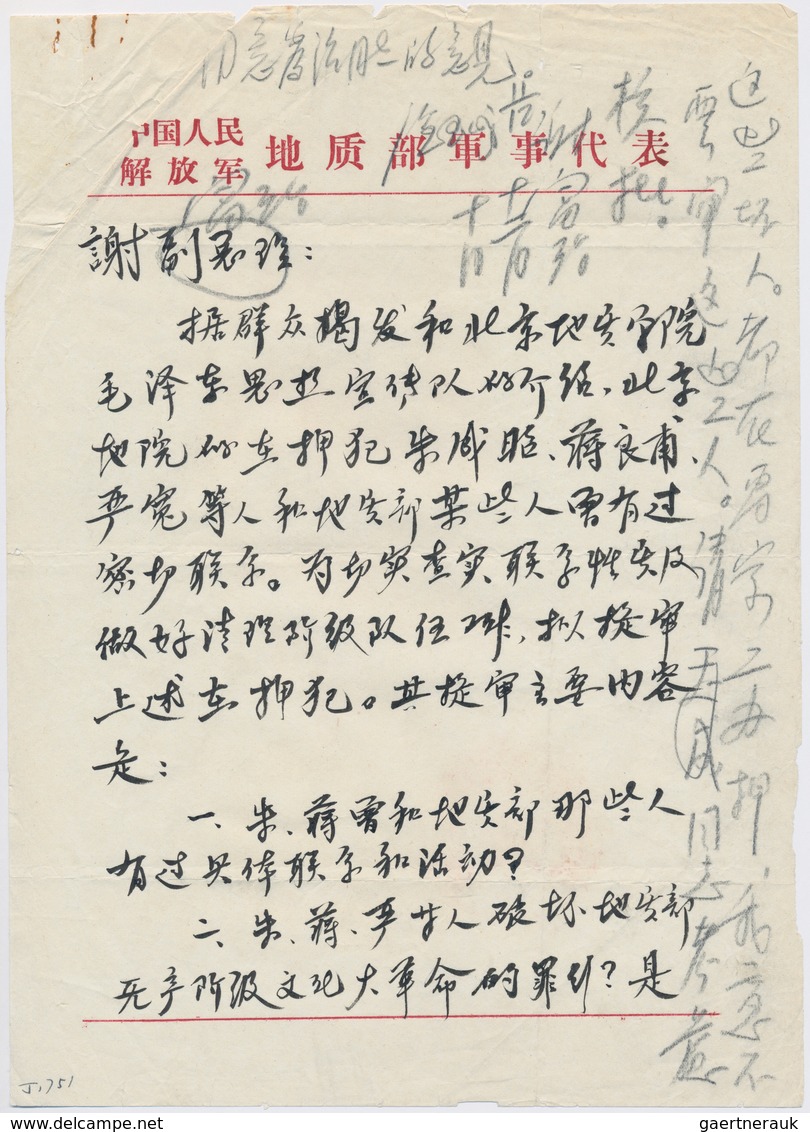 同意 的意见。
中国人民
解放军 地质部軍事代表
謝副总理：
据群众揭发和北京地质学院
毛泽东思想宣传队的介绍，北京
地院的在押犯朱成昭、蒋良甫、
严寃等人和地质部某些人曾有过
密切联系。为切实查实联系性质及
做好清理阶级队伍工作，拟提审
上述在押犯。其提审主要内容
是：
一、朱、蒋曾和地质部那些人
有过具体联系和活动？
二、朱、蒋、严等人破坏地质部
无产阶级文化大革命的罪行？是
核批。
富治
十二月
十日
富治
这些坏人。都在 押，我意不
要审这 人。请 同志
J1751
gaertnerauk